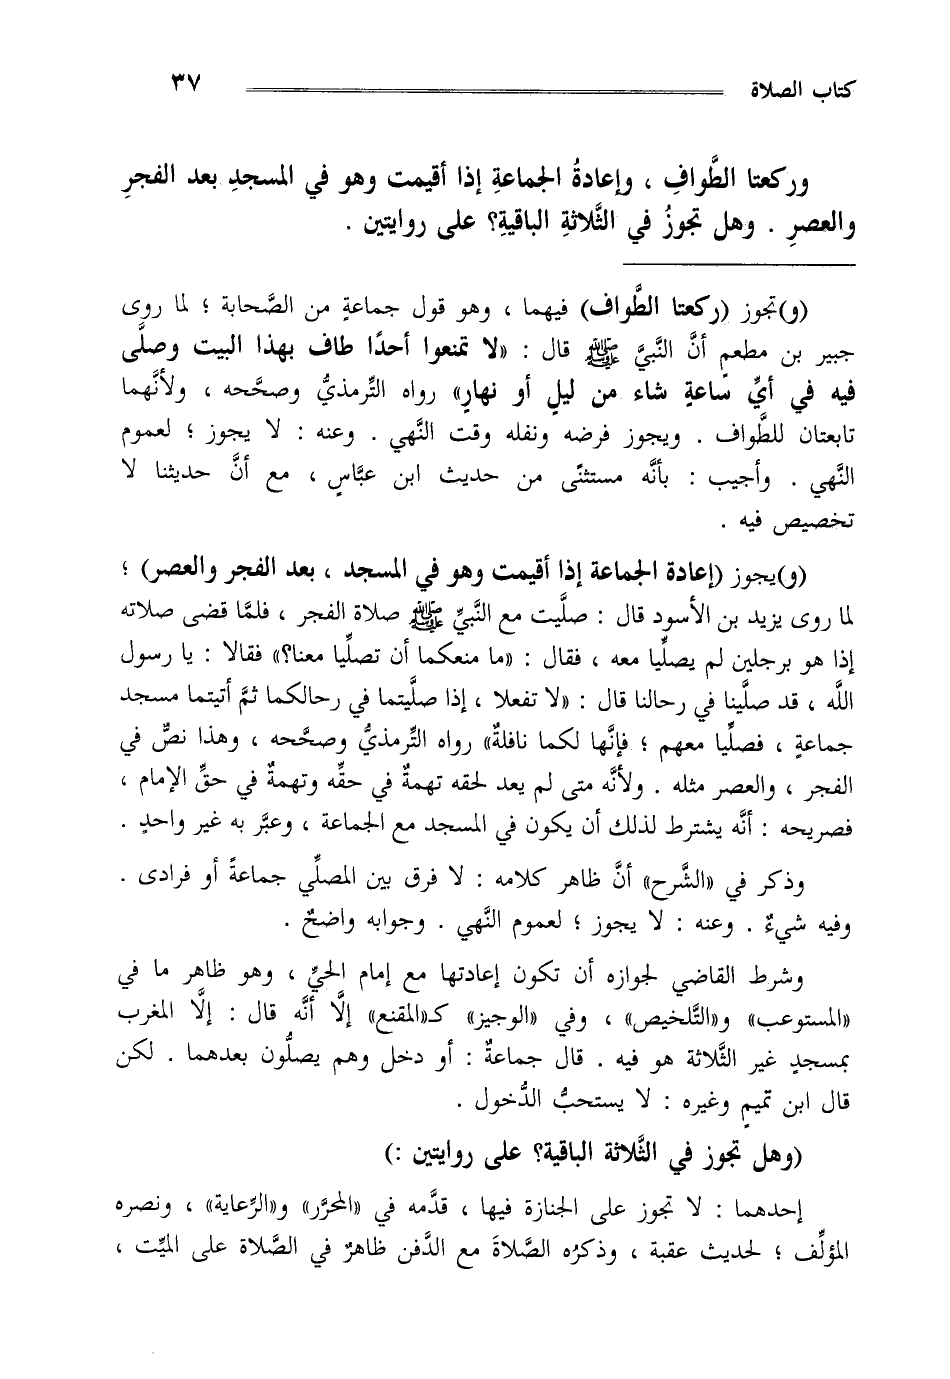 كتاب الصلاة ٣٧
وركعتا الطَّوافِ ، وإعادةُ الجماعةِ إذا أقيمت وهو في المسجدِ بعد الفجرِ
والعصرِ . وهل تجوزُ في الثَّلاثةِ الباقيةِ؟ على روايتين .
(و)تجوز (ركعتا الطَّواف) فيهما ، وهو قول جماعةٍ من الصَّحابة ؛ لما روى
جبير بن مطعمٍ أنَّ النَّبيَّ ﷺ قال : «لا تمنعوا أحدًا طاف بهذا البيت وصلَّى
فيه في أيِّ ساعةٍ شاء من ليلٍ أو نهارٍ» رواه التِّرمذيُّ وصحَّحه ، ولأنَّهما
تابعتان للطَّواف . ويجوز فرضه ونفله وقت النَّهي . وعنه : لا يجوز ؛ لعموم
النَّهي . وأجيب : بأنَّه مستثنًى من حديث ابن عبَّاسٍ ، مع أنَّ حديثنا لا
تخصيص فيه .
(و)يجوز (إعادة الجماعة إذا أقيمت وهو في المسجد ، بعد الفجر والعصر) ؛
لما روى يزيد بن الأسود قال : صلَّيت مع النَّبيِّ ﷺ صلاة الفجر ، فلمَّا قضى صلاته
إذا هو برجلين لم يصلِّيا معه ، فقال : «ما منعكما أن تصلِّيا معنا؟» فقالا : يا رسول
اللَّه ، قد صلَّينا في رحالنا قال : «لا تفعلا ، إذا صلَّيتما في رحالكما ثمَّ أتيتما مسجد
جماعةٍ ، فصلِّيا معهم ؛ فإنَّها لكما نافلةٌ» رواه التِّرمذيُّ وصحَّحه ، وهذا نصٌّ في
الفجر ، والعصر مثله . ولأنَّه متى لم يعد لحقه تهمةٌ في حقِّه وتهمةٌ في حقِّ الإمام ،
فصريحه : أنَّه يشترط لذلك أن يكون في المسجد مع الجماعة ، وعبَّر به غير واحدٍ .
وذكر في «الشَّرح» أنَّ ظاهر كلامه : لا فرق بين المصلِّي جماعةً أو فرادى .
وفيه شيءٌ . وعنه : لا يجوز ؛ لعموم النَّهي . وجوابه واضحٌ .
وشرط القاضي لجوازه أن تكون إعادتها مع إمام الحيِّ ، وهو ظاهر ما في
«المستوعب» و«التَّلخيص» ، وفي «الوجيز» كـ«المقنع» إلَّا أنَّه قال : إلَّا المغرب
بمسجدٍ غير الثَّلاثة هو فيه . قال جماعةٌ : أو دخل وهم يصلُّون بعدهما . لكن
قال ابن تميمٍ وغيره : لا يستحبُّ الدُّخول .
(وهل تجوز في الثَّلاثة الباقية؟ على روايتين :)
إحدهما : لا تجوز على الجنازة فيها ، قدَّمه في «المحرَّر» و«الرِّعاية» ، ونصره
المؤلِّف ؛ لحديث عقبة ، وذكرُه الصَّلاةَ مع الدَّفن ظاهرٌ في الصَّلاة على الميِّت ،